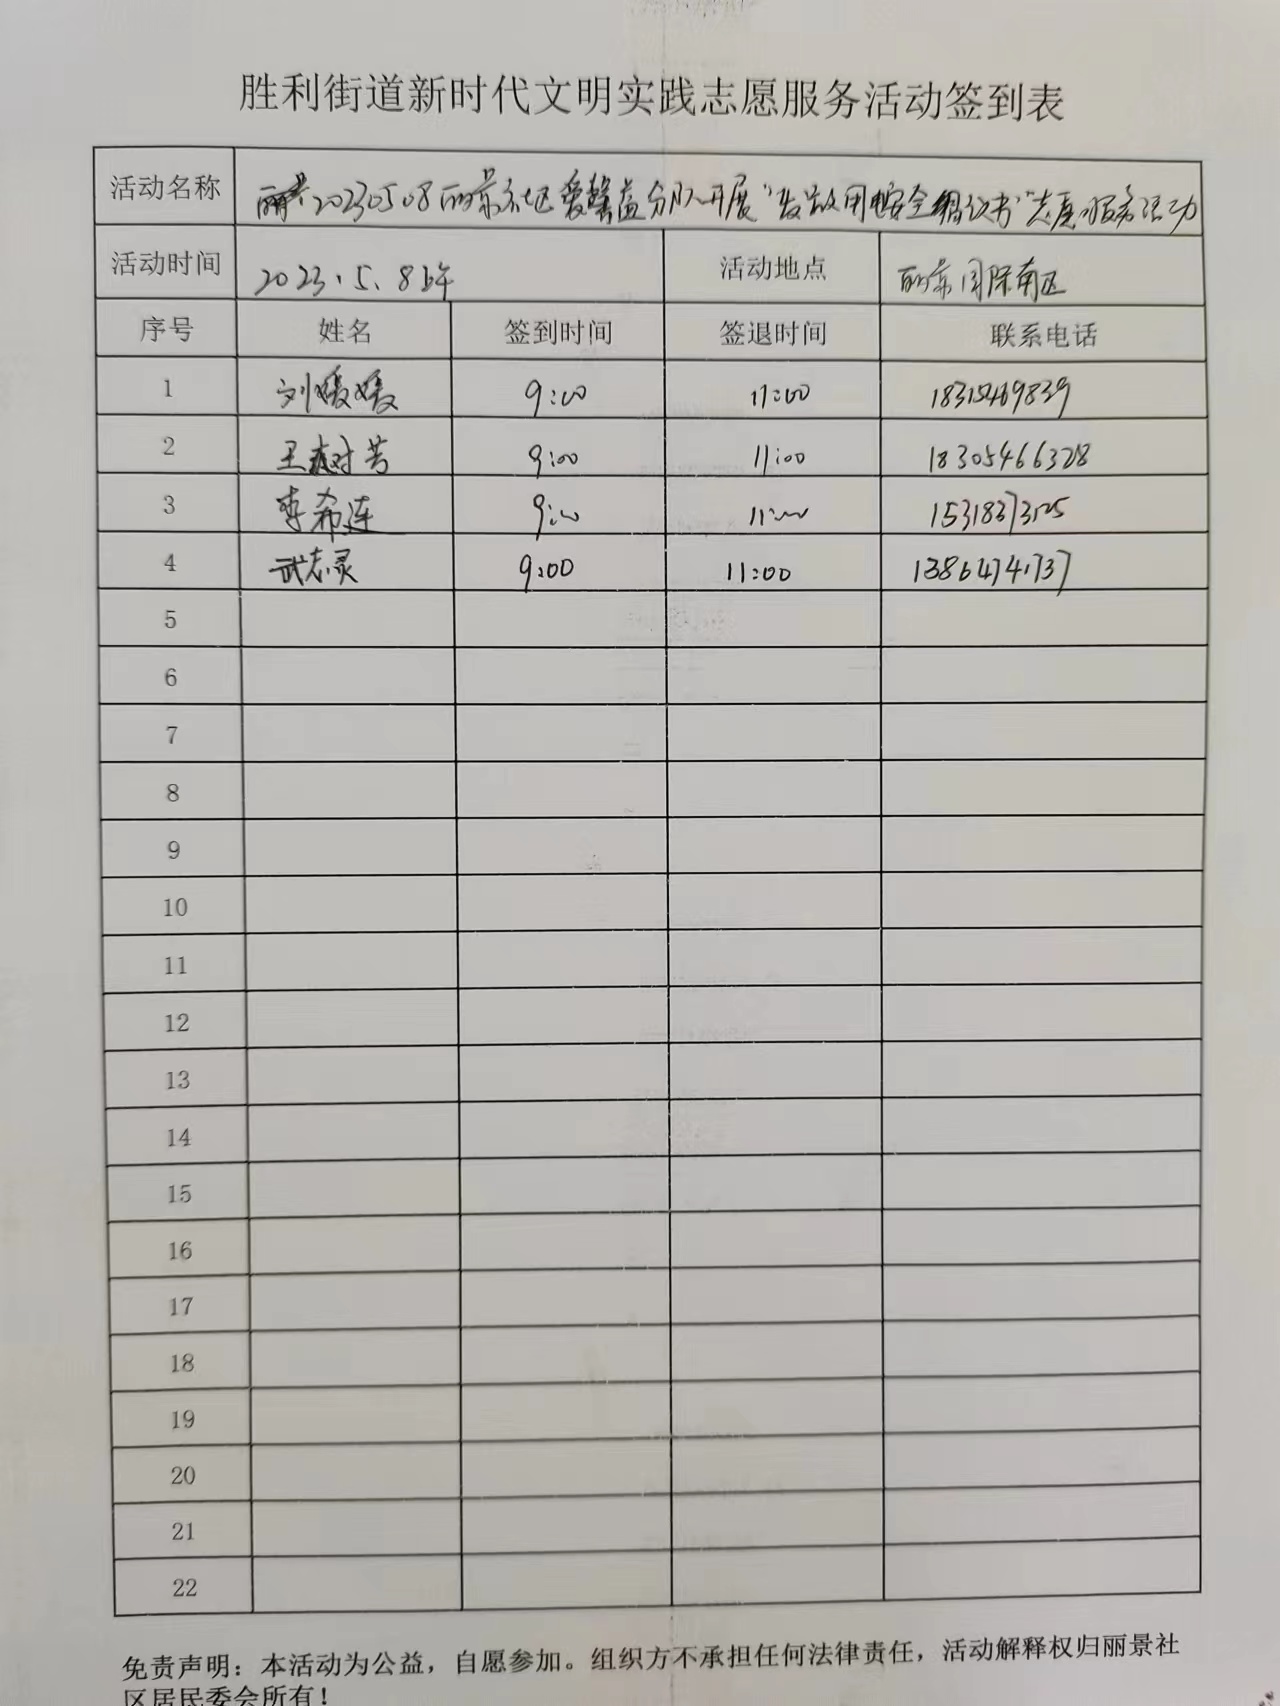 胜利街道新时代文明实践志愿服务活动签到表
活动名称 20230508丽景社区爱馨益分队开展“发放用电安全倡议书”志愿服务活动
活动时间 2023.5.8上午 活动地点 丽景国际南区
序号 姓名 签到时间 签退时间 联系电话
1 刘媛媛 9:00 11:00
2 王树芳 9:00 11:00 18305466328
3 李希连 9:00 11:00 15318373125
4 武志灵 9:00 11:00 13864741737
5
6
7
8
9
10
11
12
13
14
15
16
17
18
19
20
21
22
免责声明：本活动为公益，自愿参加。组织方不承担任何法律责任，活动解释权归丽景社
区居民委会所有！